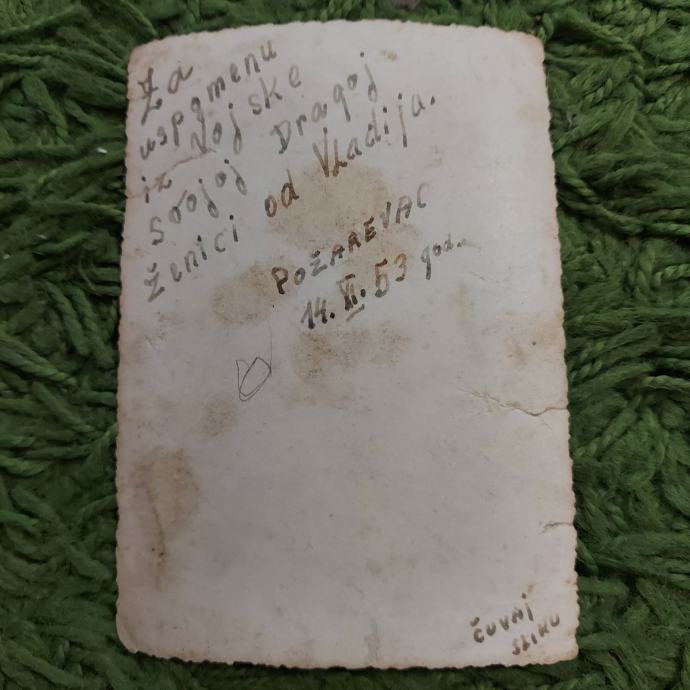 Za
uspomenu
iz Vojske
svojoj Dragoj
ženici od Vladija.
POŽAREVAC
14. XI. 53 god.
ČUVAJ
SLIKU